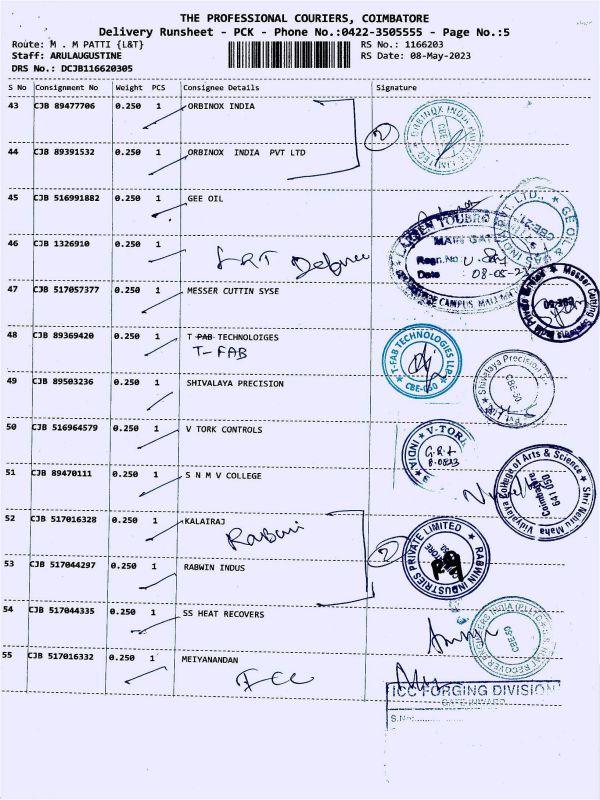 THE PROFESSIONAL COURIERS, COIMBATORE
Delivery Runsheet - PCK - Phone No.:0422-3505555 - Page No.:5
Route: M . M PATTI {L&T} RS No.: 1166203
Staff: ARULAUGUSTINE RS Date: 08-May-2023
DRS No.: DCJB116620305
S No Consignment No Weight PCS Consignee Details Signature
43 CJB 89477706 0.250 1 ORBINOX INDIA
2
44 CJB 89391532 0.250 1 ORBINOX INDIA PVT LTD
45 CJB 516991882 0.250 1 GEE OIL
LARSEN TOUBRO
MAIN GAT
46 CJB 1326910 0.250 1
L&T Defence
Regn.No
Date : 08-05-2
47 CJB 517057377 0.250 1 MESSER CUTTIN SYSE
48 CJB 89369420 0.250 1 T PAB TECHNOLOIGES
T-FAB
T-FAB TECHNOLOGIES LLP
CBE-050
49 CJB 89503236 0.250 1 SHIVALAYA PRECISION
Shivalaya Precision
CBE-50
50 CJB 516964579 0.250 1 V TORK CONTROLS
V-TORK
INDIA
51 CJB 89470111 0.250 1 S N M V COLLEGE
Shri Nehru Maha Vidyalaya College of Arts & Science
Coimbatore
641 050
52 CJB 517016328 0.250 1 KALAIRAJ
Rabwin
2
RABWIN INDUSTRIES PRIVATE LIMITED
53 CJB 517044297 0.250 1 RABWIN INDUS
54 CJB 517044335 0.250 1 SS HEAT RECOVERS
CBE-50
55 CJB 517016332 0.250 1 MEIYANANDAN
ICC
ICC FORGING DIVISION
GATE INWARD
S.No: